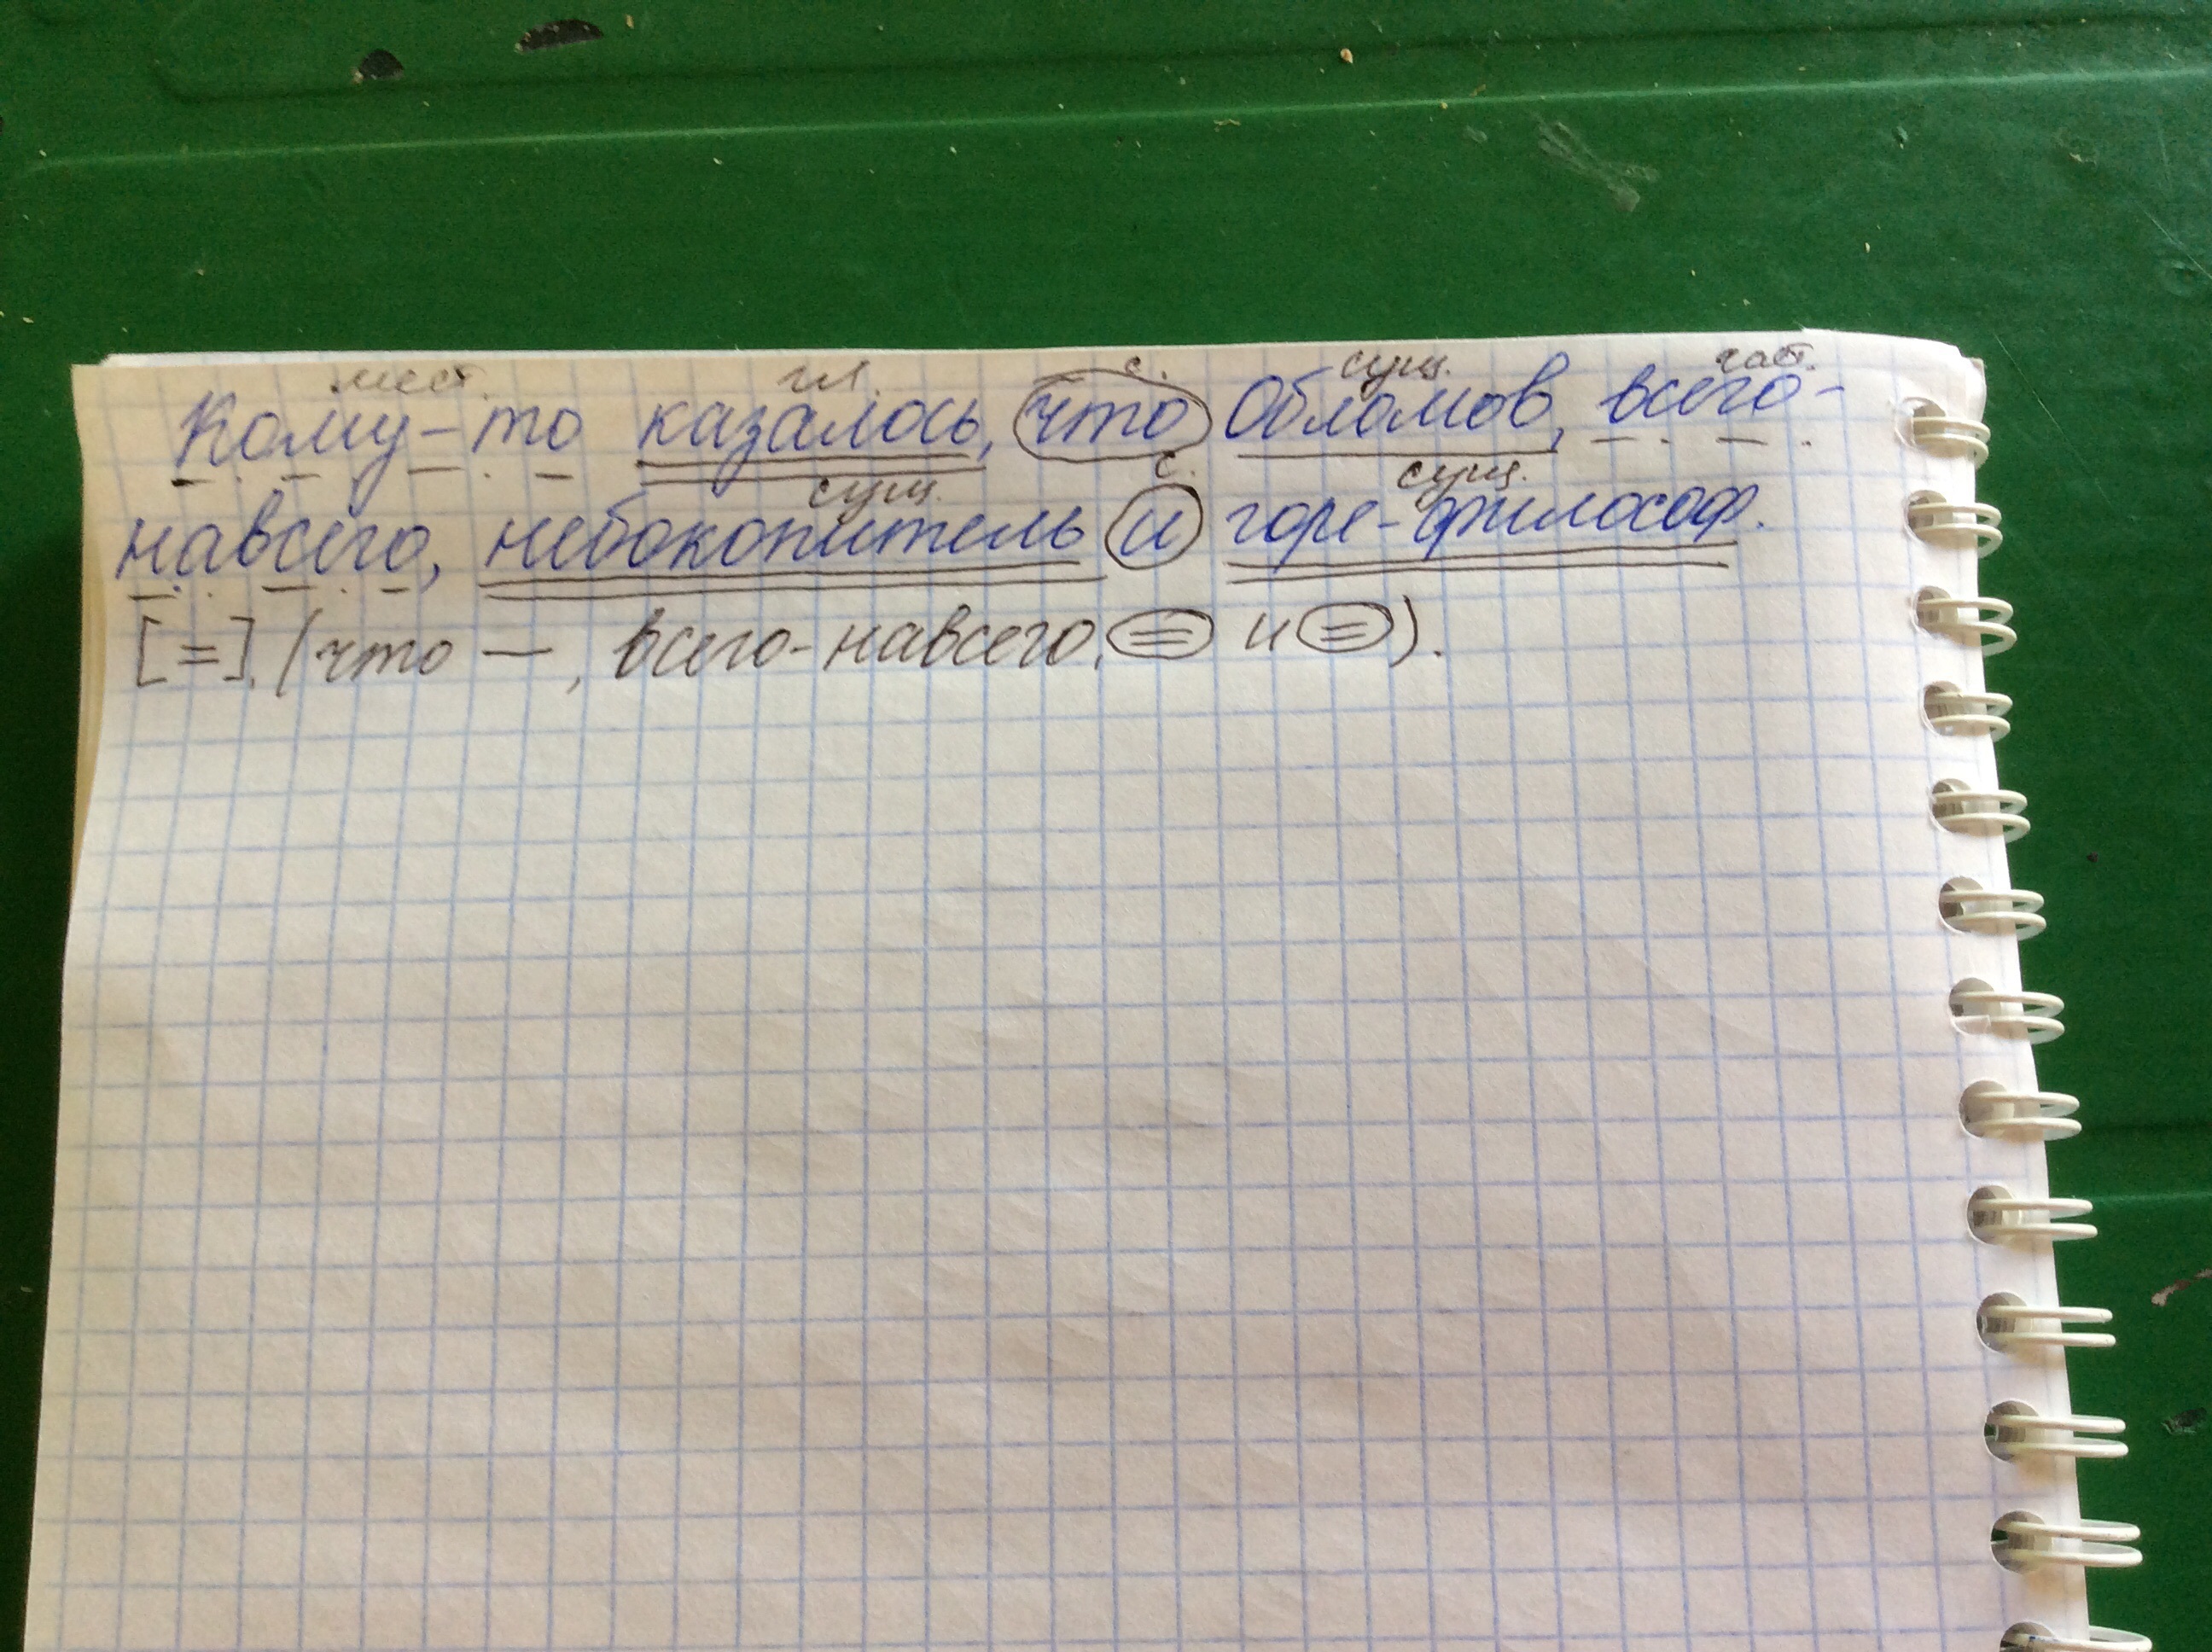 мест. гл. с. сущ. част.
Кому-то казалось, что Обломов, всего-
сущ. с. сущ.
навсего, небокоптитель и горе-философ.
[=], (что —, всего-навсего, = и =).